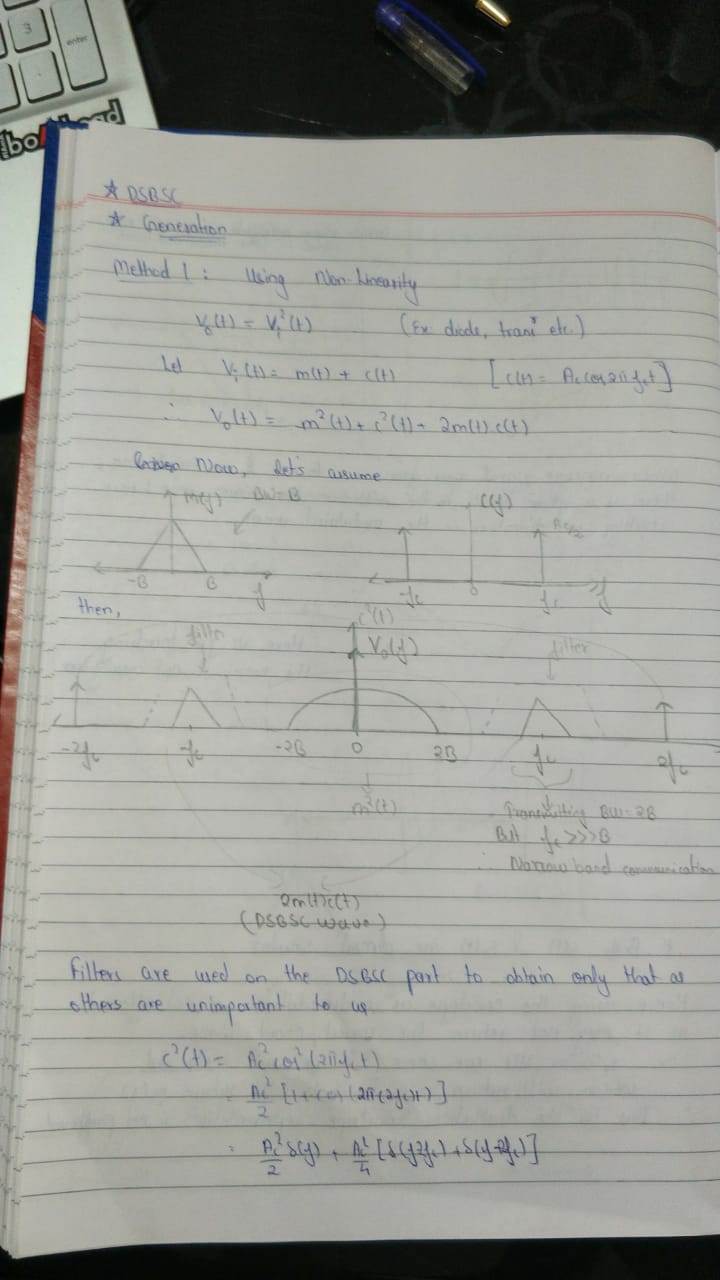 3
enter
☆ DSBSC
☆ Generation
Method 1 : Using Non-Linearity
V₀(t) = Vᵢ²(t) (Ex. diode, tranⁿ etc.)
Let Vᵢ(t) = m(t) + c(t) [c(t) = Ac cos 2πfct]
∴ V₀(t) = m²(t) + c²(t) + 2m(t) c(t)
Now, let's assume
M(f) BW=B C(f)
Ac/2
-B B f -fc 0 fc f
then,
c²(t)
filter V₀(f) filter
-2fc -fc -2B 0 2B fc 2fc
m²(t) Transmitting BW=2B
But fc >>> B
∴ Narrow band communication
2m(t)c(t)
(DSBSC wave)
Filters are used on the DSBSC part to obtain only that as
others are unimportant to us
c²(t) = Ac² cos² (2πfct)
= Ac²/2 [1+cos(2π(2fc)t)]
= Ac²/2 δ(f) + Ac²/4 [δ(f+2fc) + δ(f-2fc)]